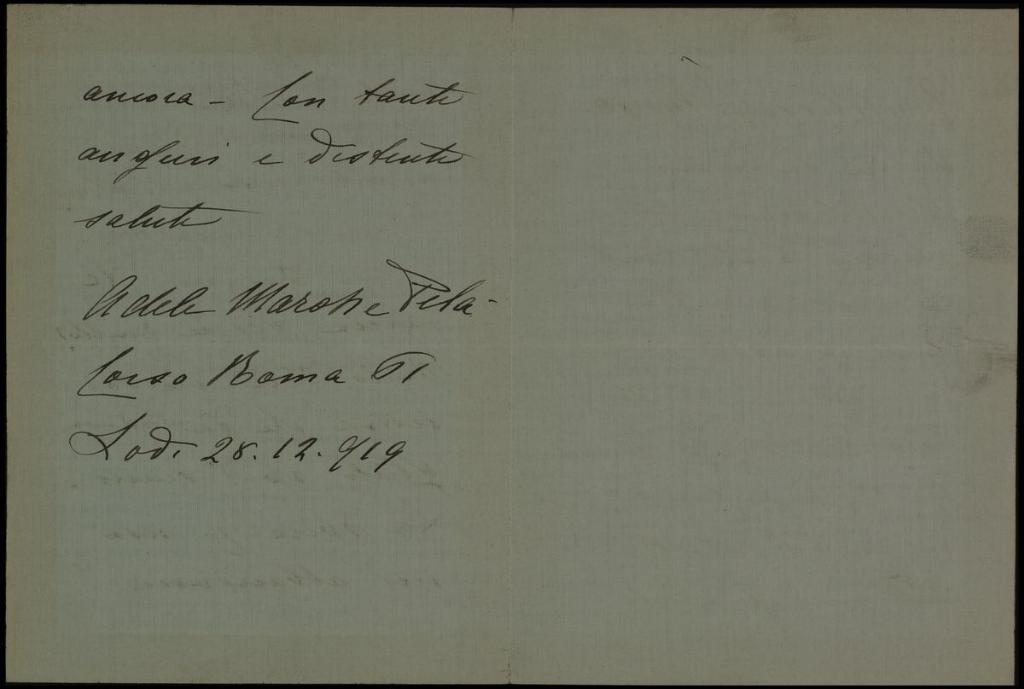 ancora - Con tanti
auguri e distinti
saluti
Adele Maroshe Pela-
Corso Roma 61
Lodi 28.12.919